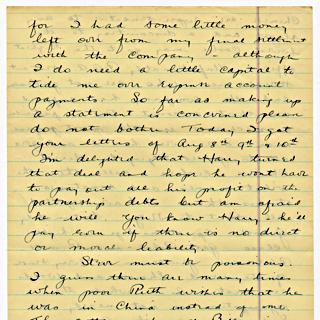 for I had some little money
left over from my final settlement
with the Company - although
I do need a little capital to
tide me over expense account
payments. So far as making up
a statement is concerned please
do not bother. Today I got
your letters of Aug 8th 9th & 10th
I'm delighted that Harry turned
that deal and hope he wont have
to pay out all his profit on the
partnership debts but am afraid
he will. You know Harry - he'll
pay even if there is no direct
or moral liability.
must be poisonous.
I guess there are many times
when poor Ruth wishes that he
was in China instead of me.